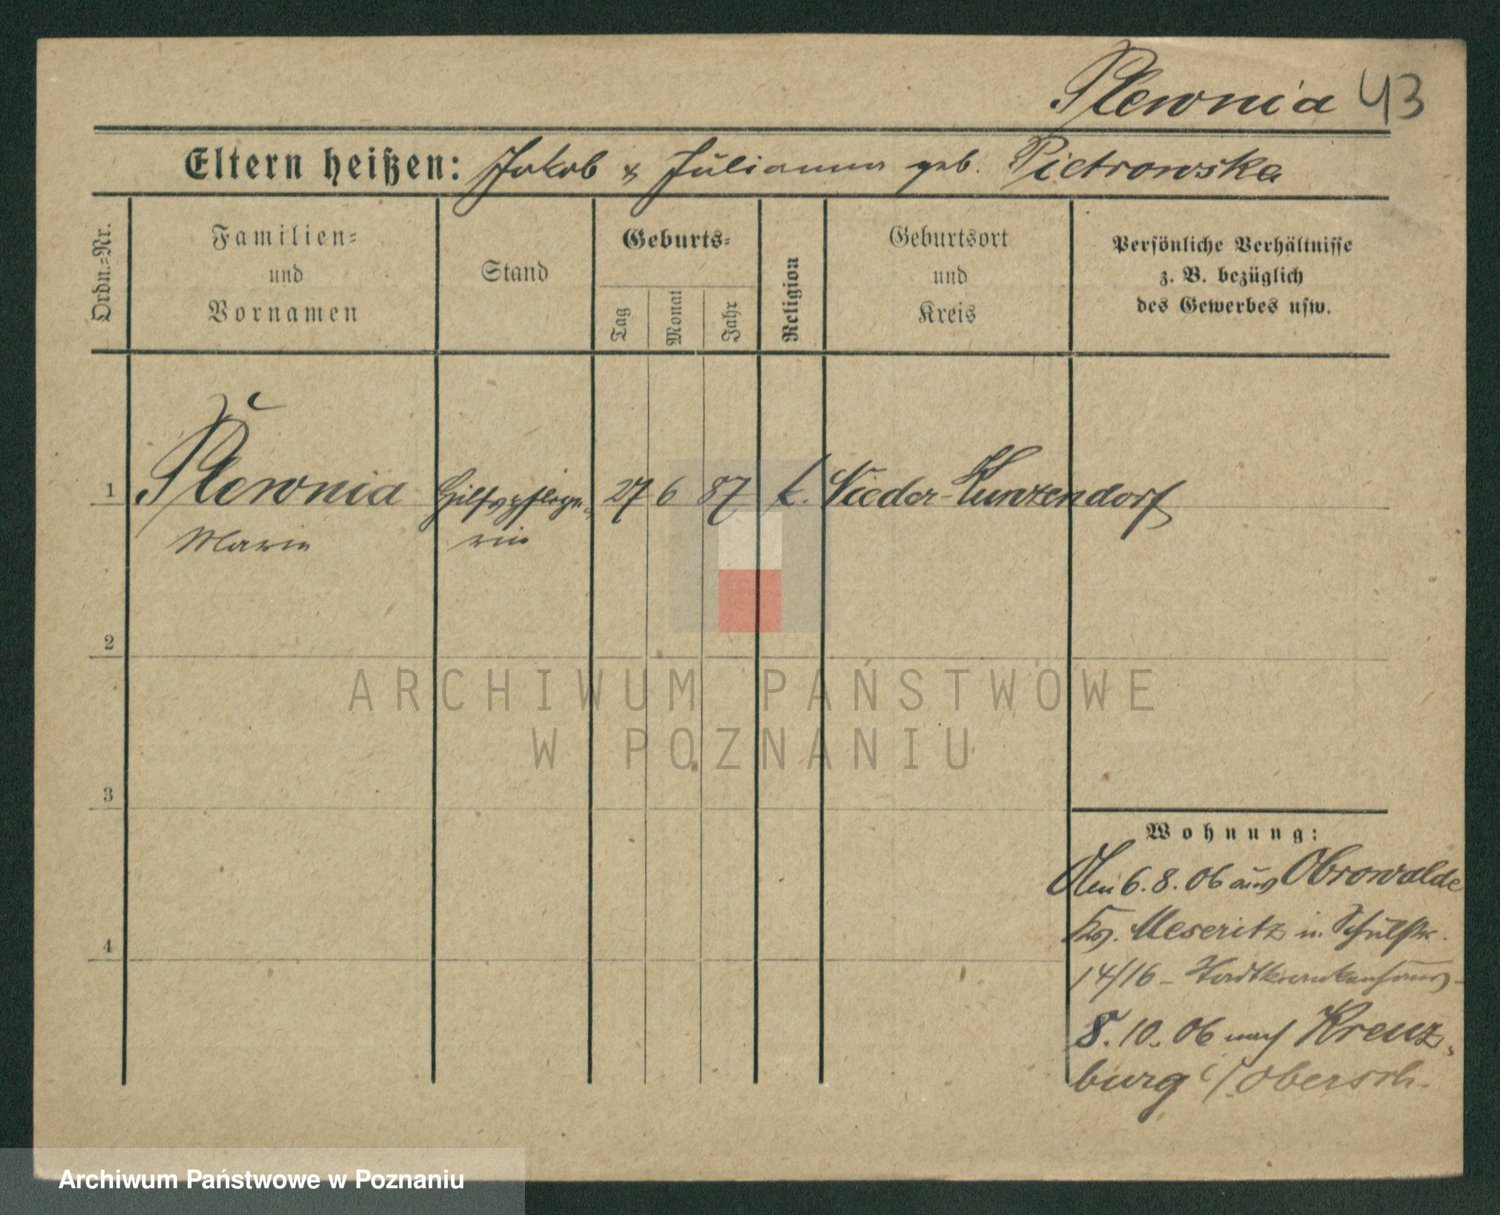 Plewnia 43
Eltern heißen: Jakob & Julianna geb. Pietrowska
Ordn.-Nr.
Familien-
und
Vornamen
Stand
Geburts-
Tag
Monat
Jahr
Religion
Geburtsort
und
Kreis
Persönliche Verhältnisse
z. B. bezüglich
des Gewerbes usw.
1 Plewnia Hilfspflege- 27 6 87 k. Nieder-Kunzendorf
Marie rin
2
3
4
Wohnung:
Am 6.8.06 aus Obrawalde
Krs. Meseritz in Schulstr.
14/16 - Stadtkrankenhaus -
8.10.06 nach Kreuz-
burg i/Obersch.
ARCHIWUM PAŃSTWOWE
W POZNANIU
Archiwum Państwowe w Poznaniu